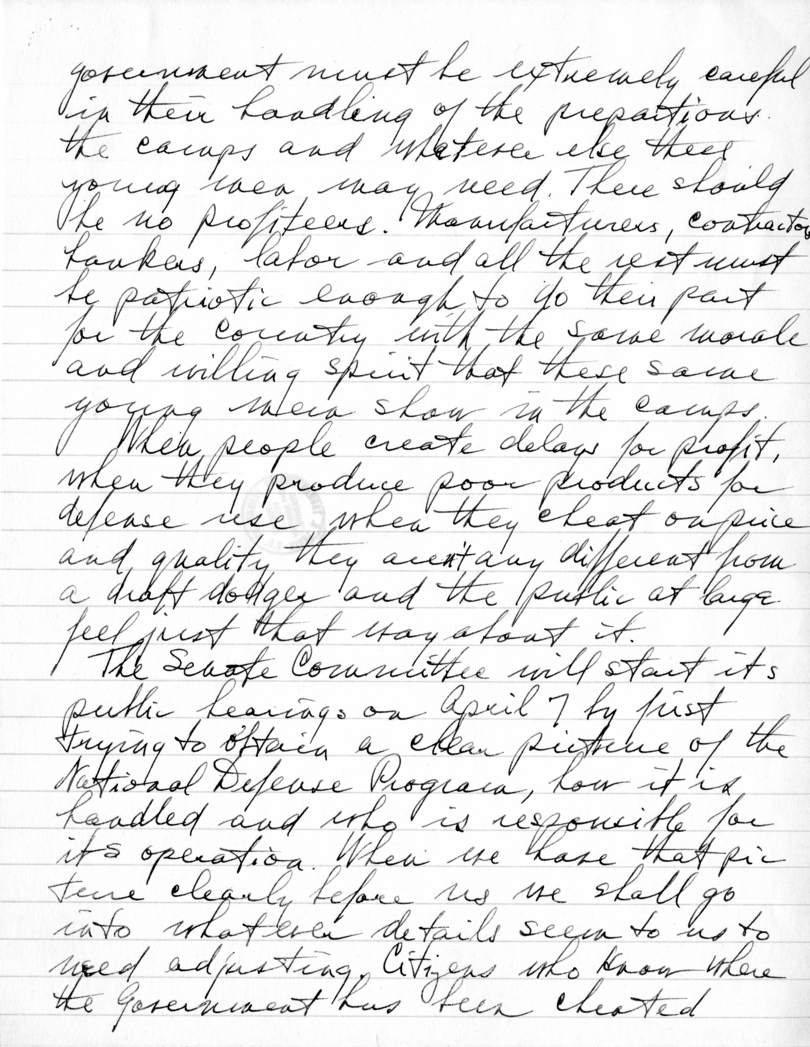 government must be extremely careful
in their handling of the prepartions.
the camps and whatever else these
young men may need. There should
be no profiteers. Manufacturers, contractors
bankers, labor and all the rest must
be patriotic enough to do their part
for the country with the same morale
and willing spirit that these same
young men show in the camps.
When people create delays for profit,
when they produce poor products for
defense use, when they cheat on price
and quality they aren't any different from
a draft dodger and the public at large
feel just that way about it.
The Senate Committee will start its
public hearings on April 7 by first
trying to obtain a clear picture of the
National Defense Program, how it is
handled and who is responsible for
its operation. When we have that pic
ture clearly before us we shall go
into whatever details seem to us to
need adjusting. Citizens who know where
the Government has been cheated